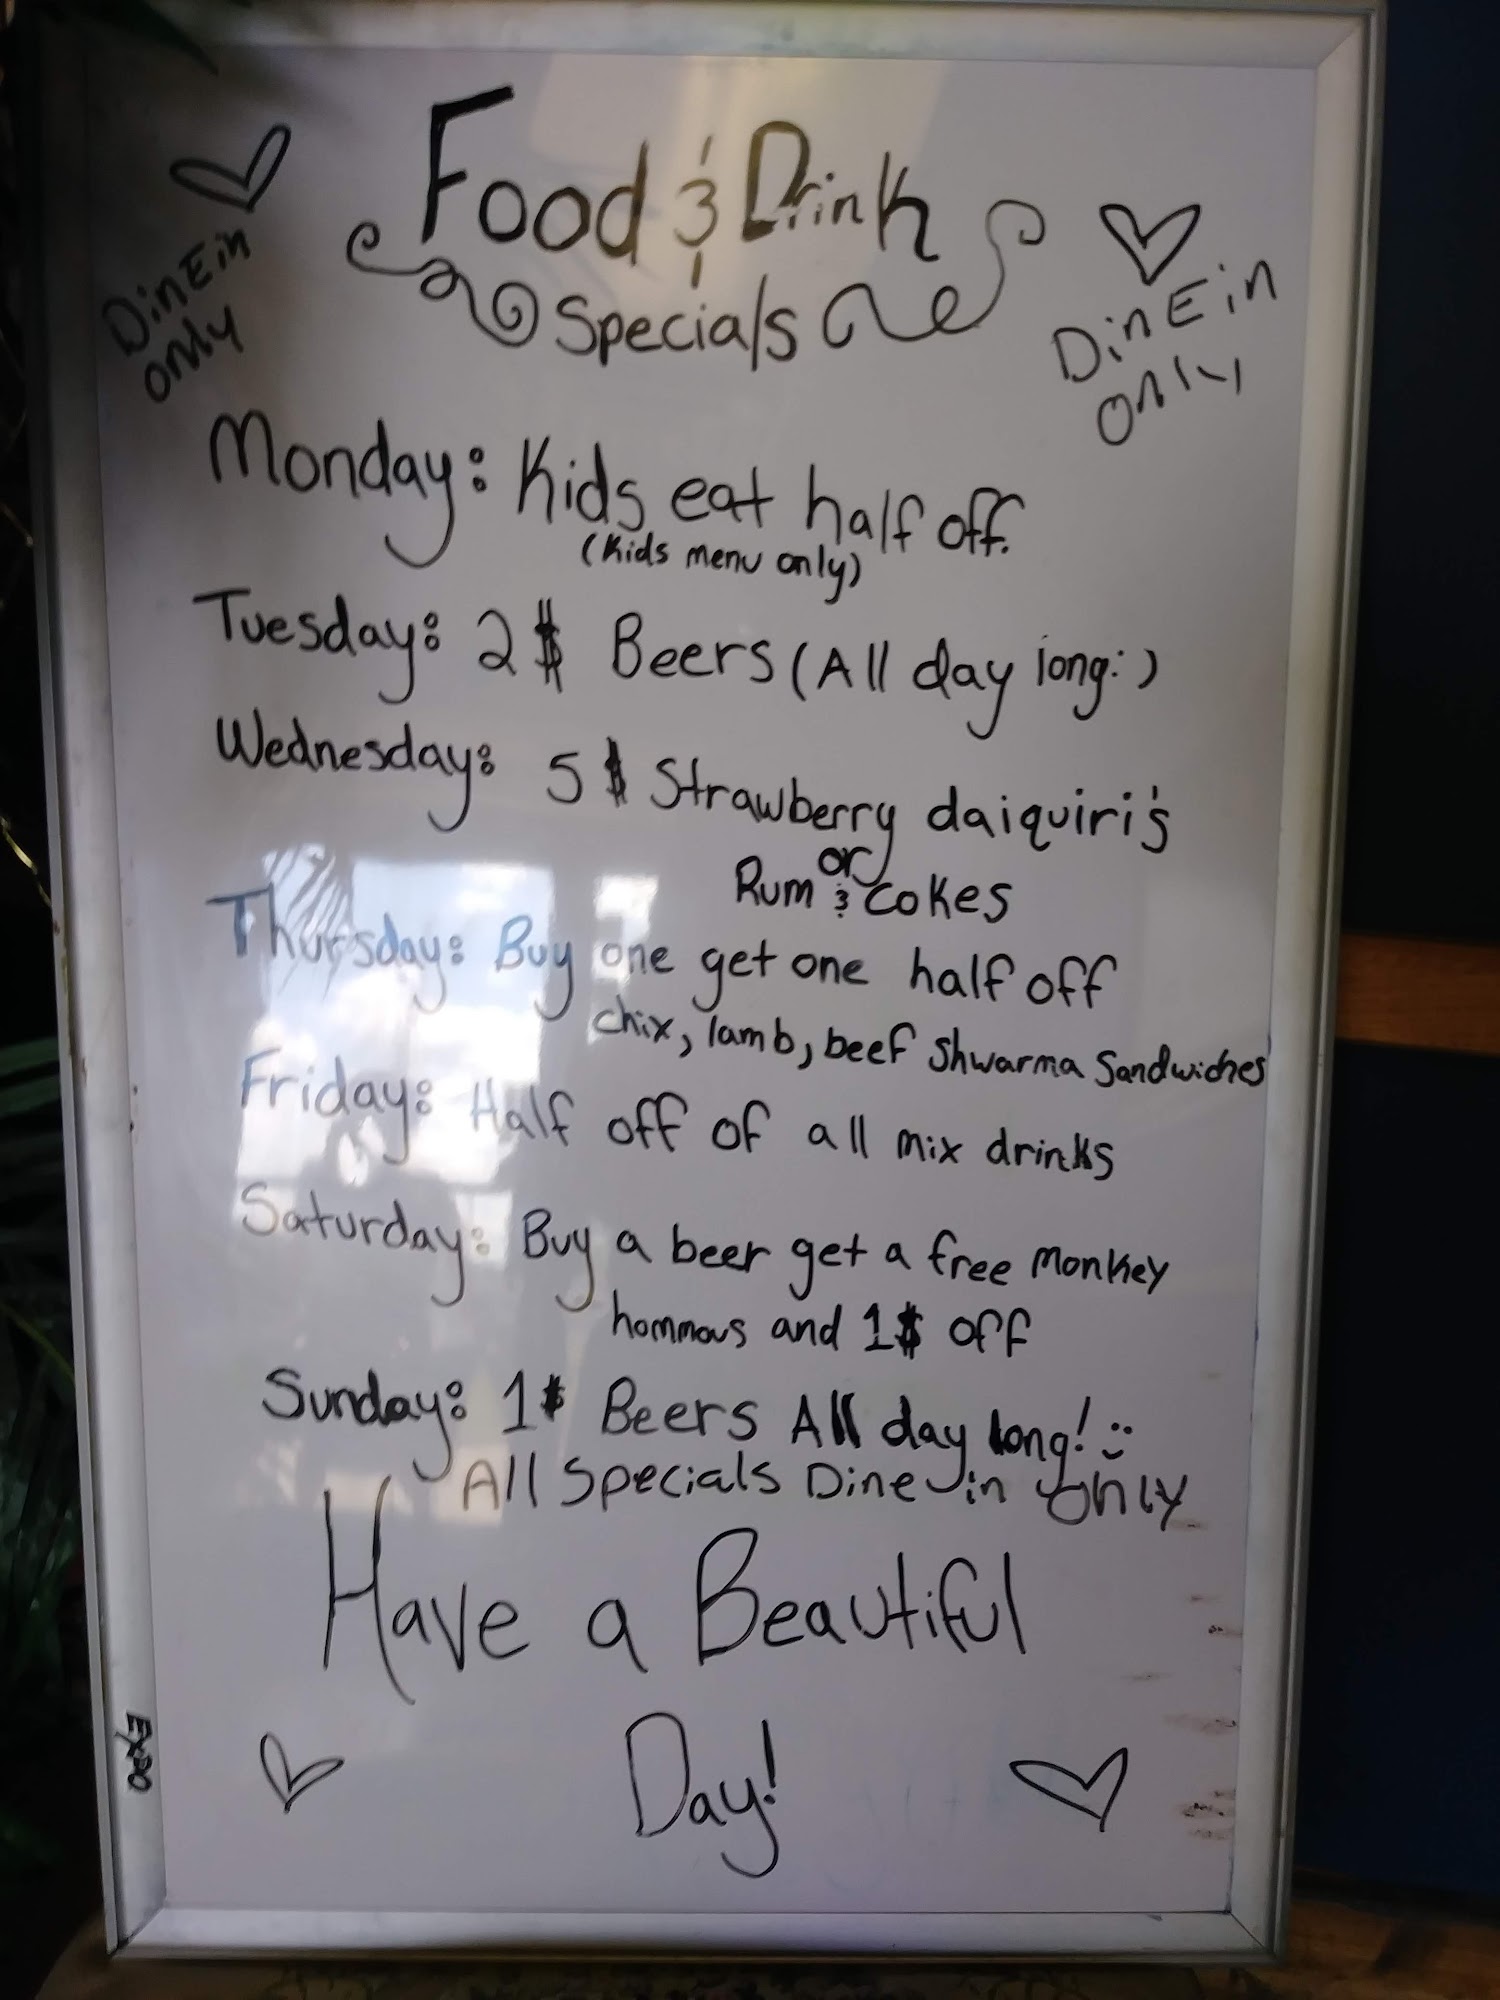 Food & Drink
Specials
DinE in
only
DinE in
only
Monday: Kids eat half off.
(Kids menu only)
Tuesday: 2$ Beers (All day long:)
Wednesday: 5$ Strawberry daiquiri's
or
Rum & cokes
Thursday: Buy one get one half off
chix, lamb, beef Shwarma Sandwiches
Friday: Half off of all mix drinks
Saturday: Buy a beer get a free Monkey
hommous and 1$ off
Sunday: 1$ Beers All day long! :)
All Specials Dine in only
Have a Beautiful
Day!
EXPO